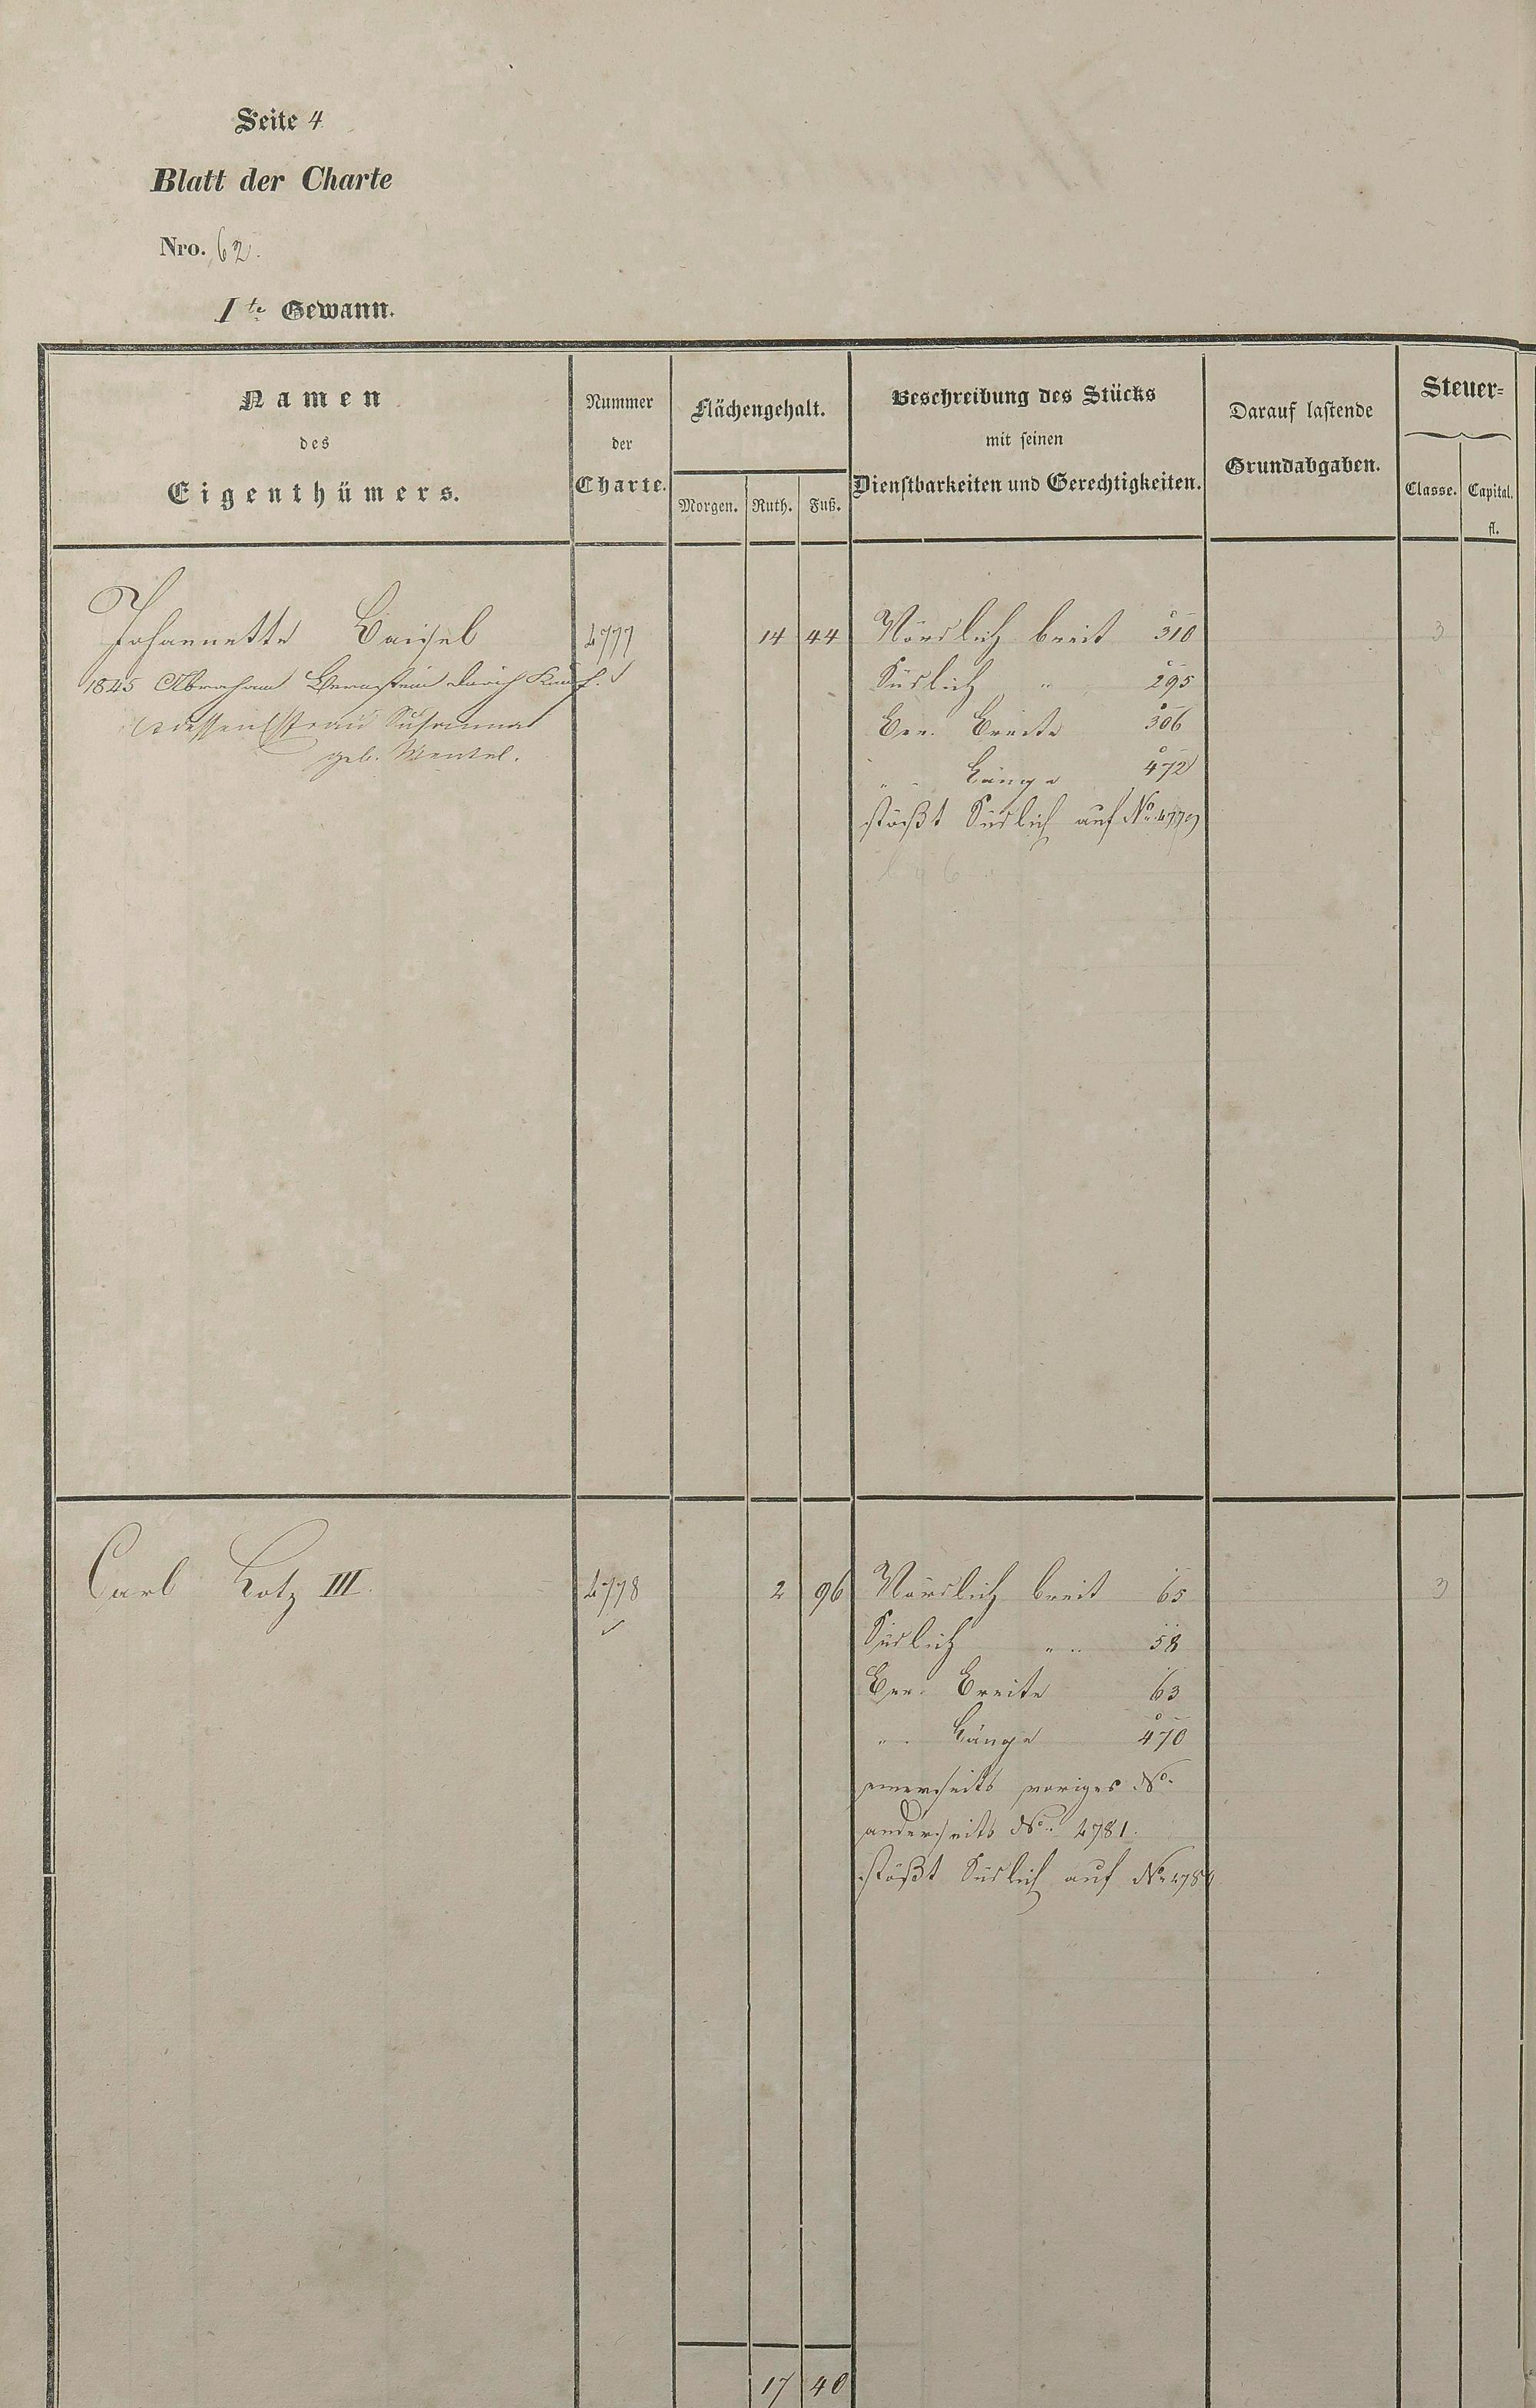 Seite 4
Blatt der Charte
Nro. 62.
I te Gewann.
Namen
des
Eigenthümers.
Nummer
der
Charte.
Flächengehalt.
Morgen. Ruth. Fuß.
Beschreibung des Stücks
mit seinen
Dienstbarkeiten und Gerechtigkeiten.
Darauf lastende
Grundabgaben.
Steuer=
Classe. Capital.
fl.
Johannette 4777 14 44 Nördlich breit 310 3
1845 Abraham Bernstein durch Kauf. Südlich " 295
u dessen Ehefrau Susanna Ger. Breite 306
geb. Wentzel. " Länge 472
stößt Südlich auf No. 4779
Carl Lotz III. 4778 2 96 Nördlich breit 65 3
Südlich " 58
Ger. Breite 63
" Länge 470
einerseits voriges No.
anderseits No. 4781.
stößt Südlich auf No.
17 40